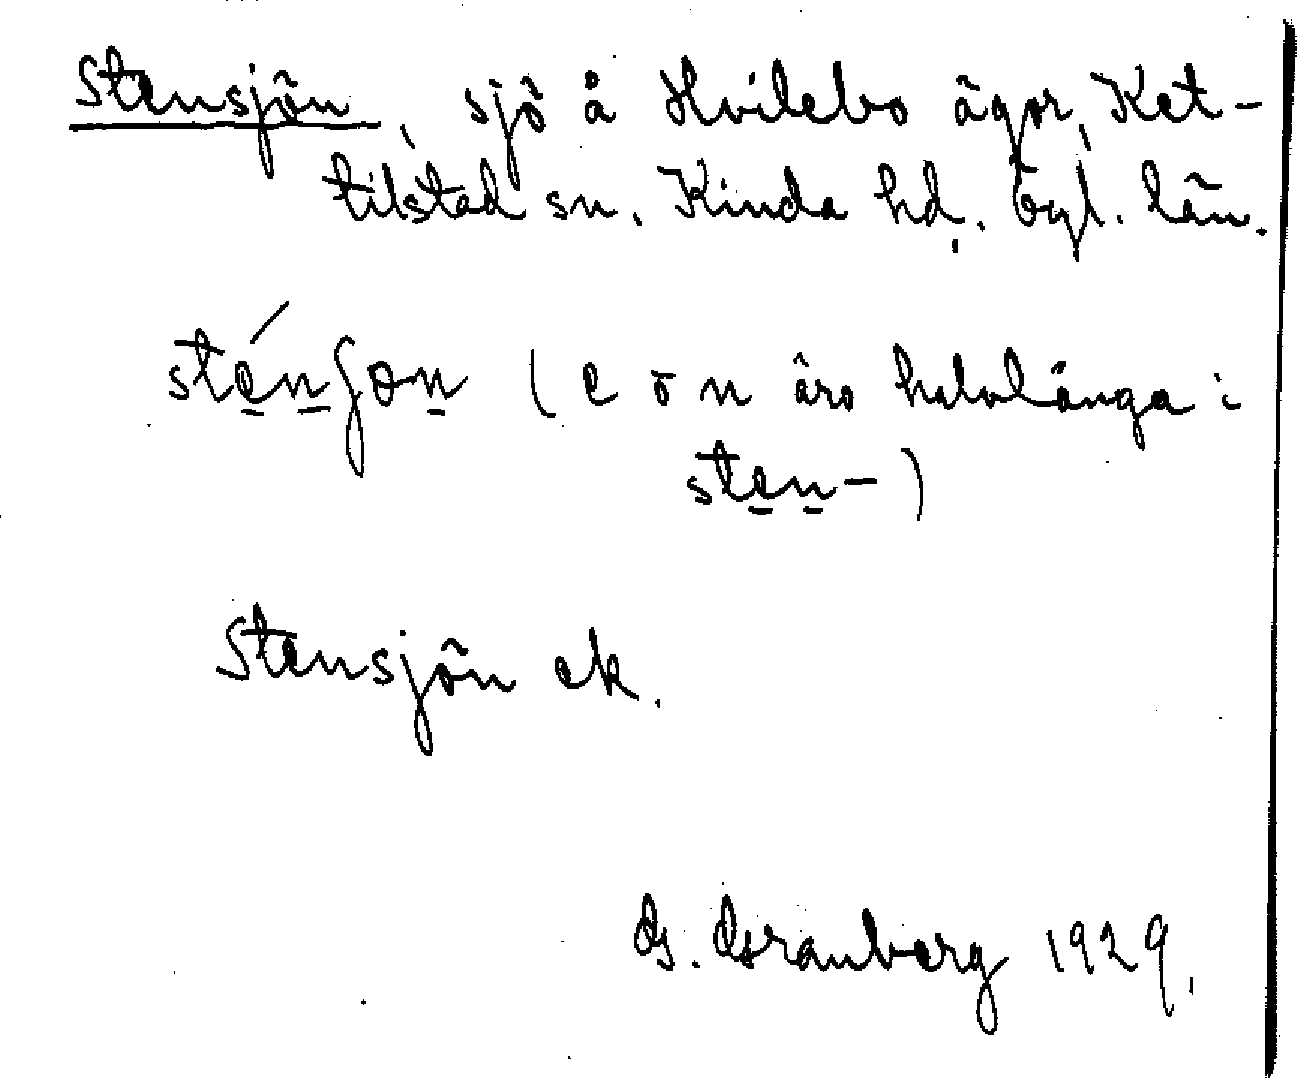 Stensjön, sjö å Hvilebo ägor, Ket-
tilstad sn. Kinda hd. Ögl. län.
sténʃon (e o n äro halvlånga i
sten-)
Stensjön ek.
G. Granberg 1929.